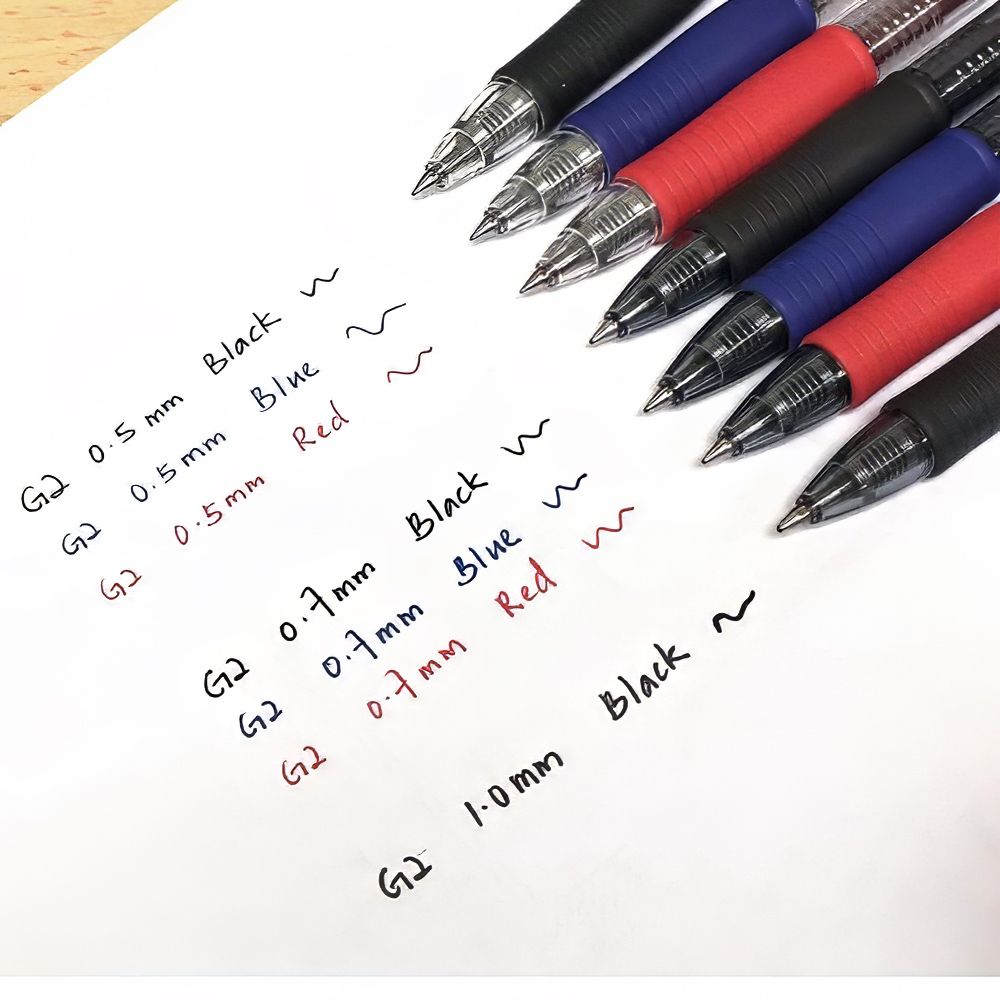 G2 0.5 mm Black
G2 0.5 mm Blue
G2 0.5 mm Red
G2 0.7 mm Black
G2 0.7 mm Blue
G2 0.7 mm Red
G2 1.0 mm Black